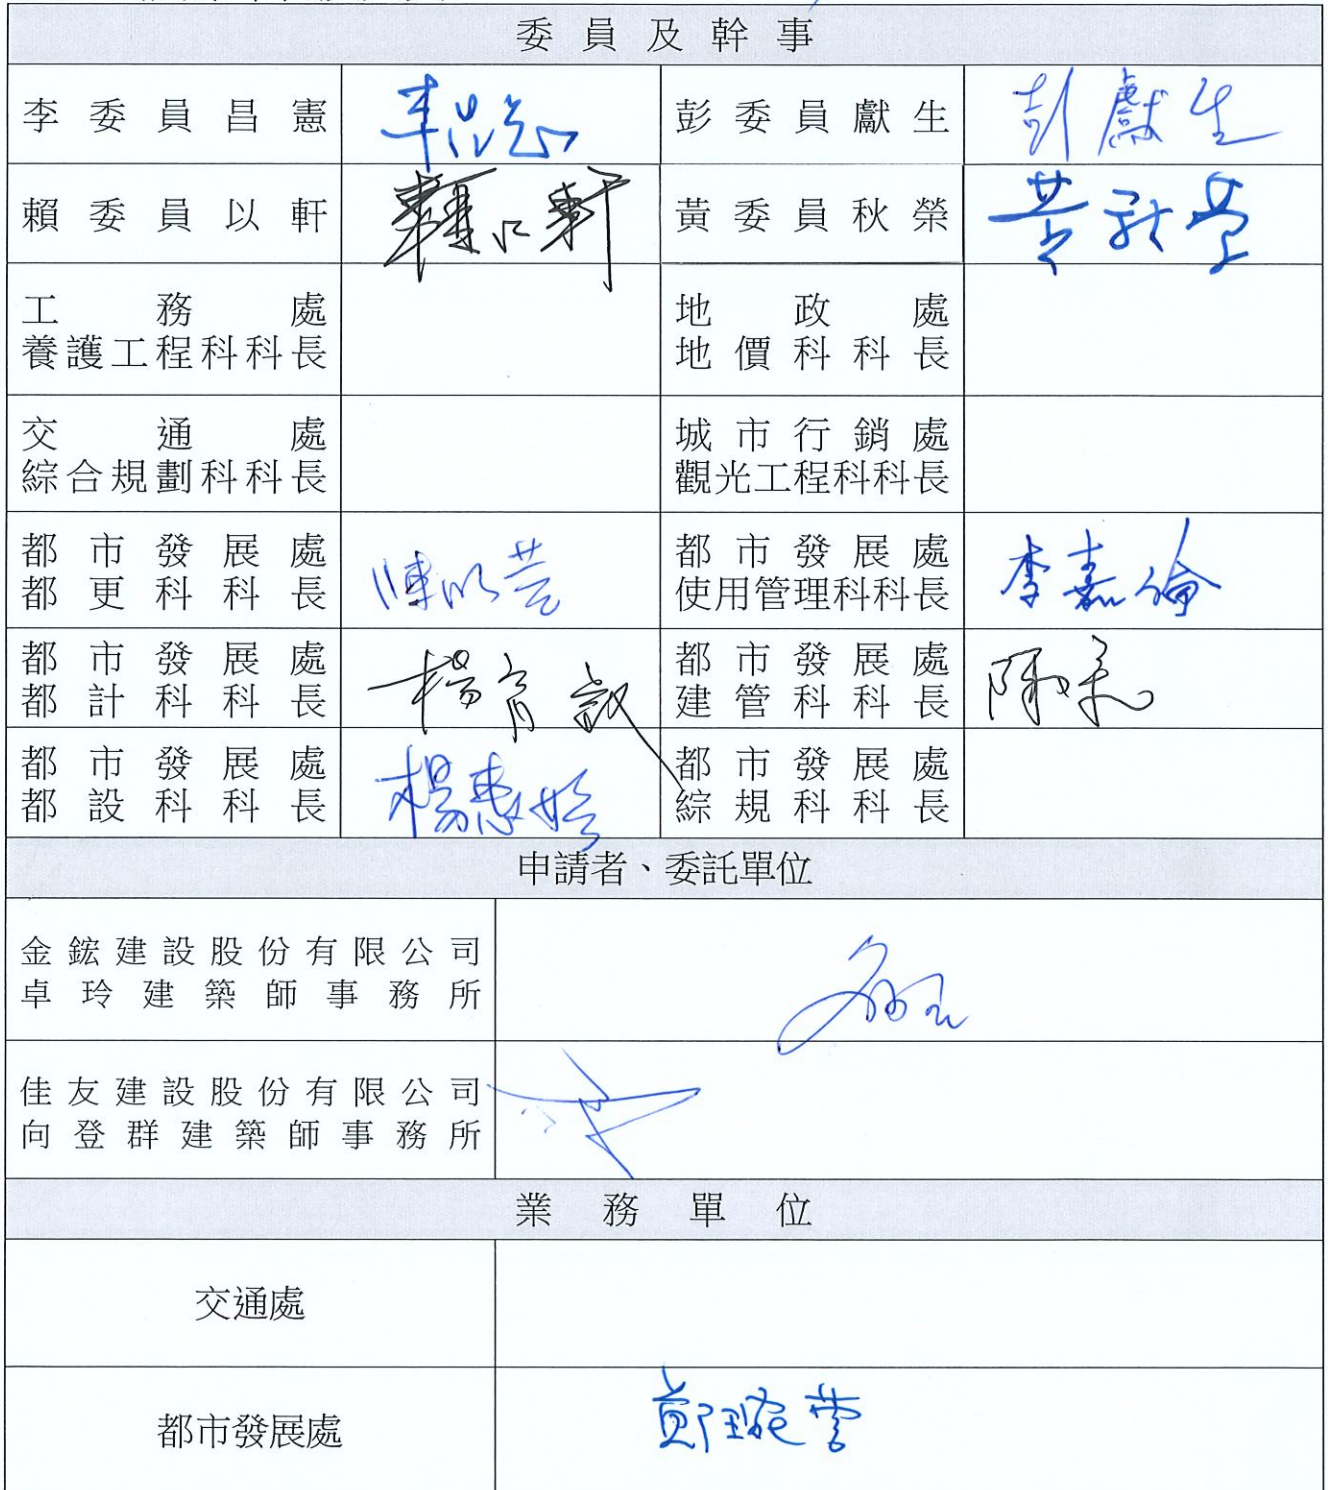 委員及幹事
李委員昌憲
彭委員獻生 彭獻生
賴委員以軒 賴以軒
黃委員秋榮 黃秋榮
工務處
養護工程科科長
地政處
地價科科長
交通處
綜合規劃科科長
城市行銷處
觀光工程科科長
都市發展處
都更科科長
都市發展處
使用管理科科長 李嘉倫
都市發展處
都計科科長
都市發展處
建管科科長
都市發展處
都設科科長
都市發展處
綜規科科長
申請者、委託單位
金鋐建設股份有限公司
卓玲建築師事務所
佳友建設股份有限公司
向登群建築師事務所
業務單位
交通處
都市發展處